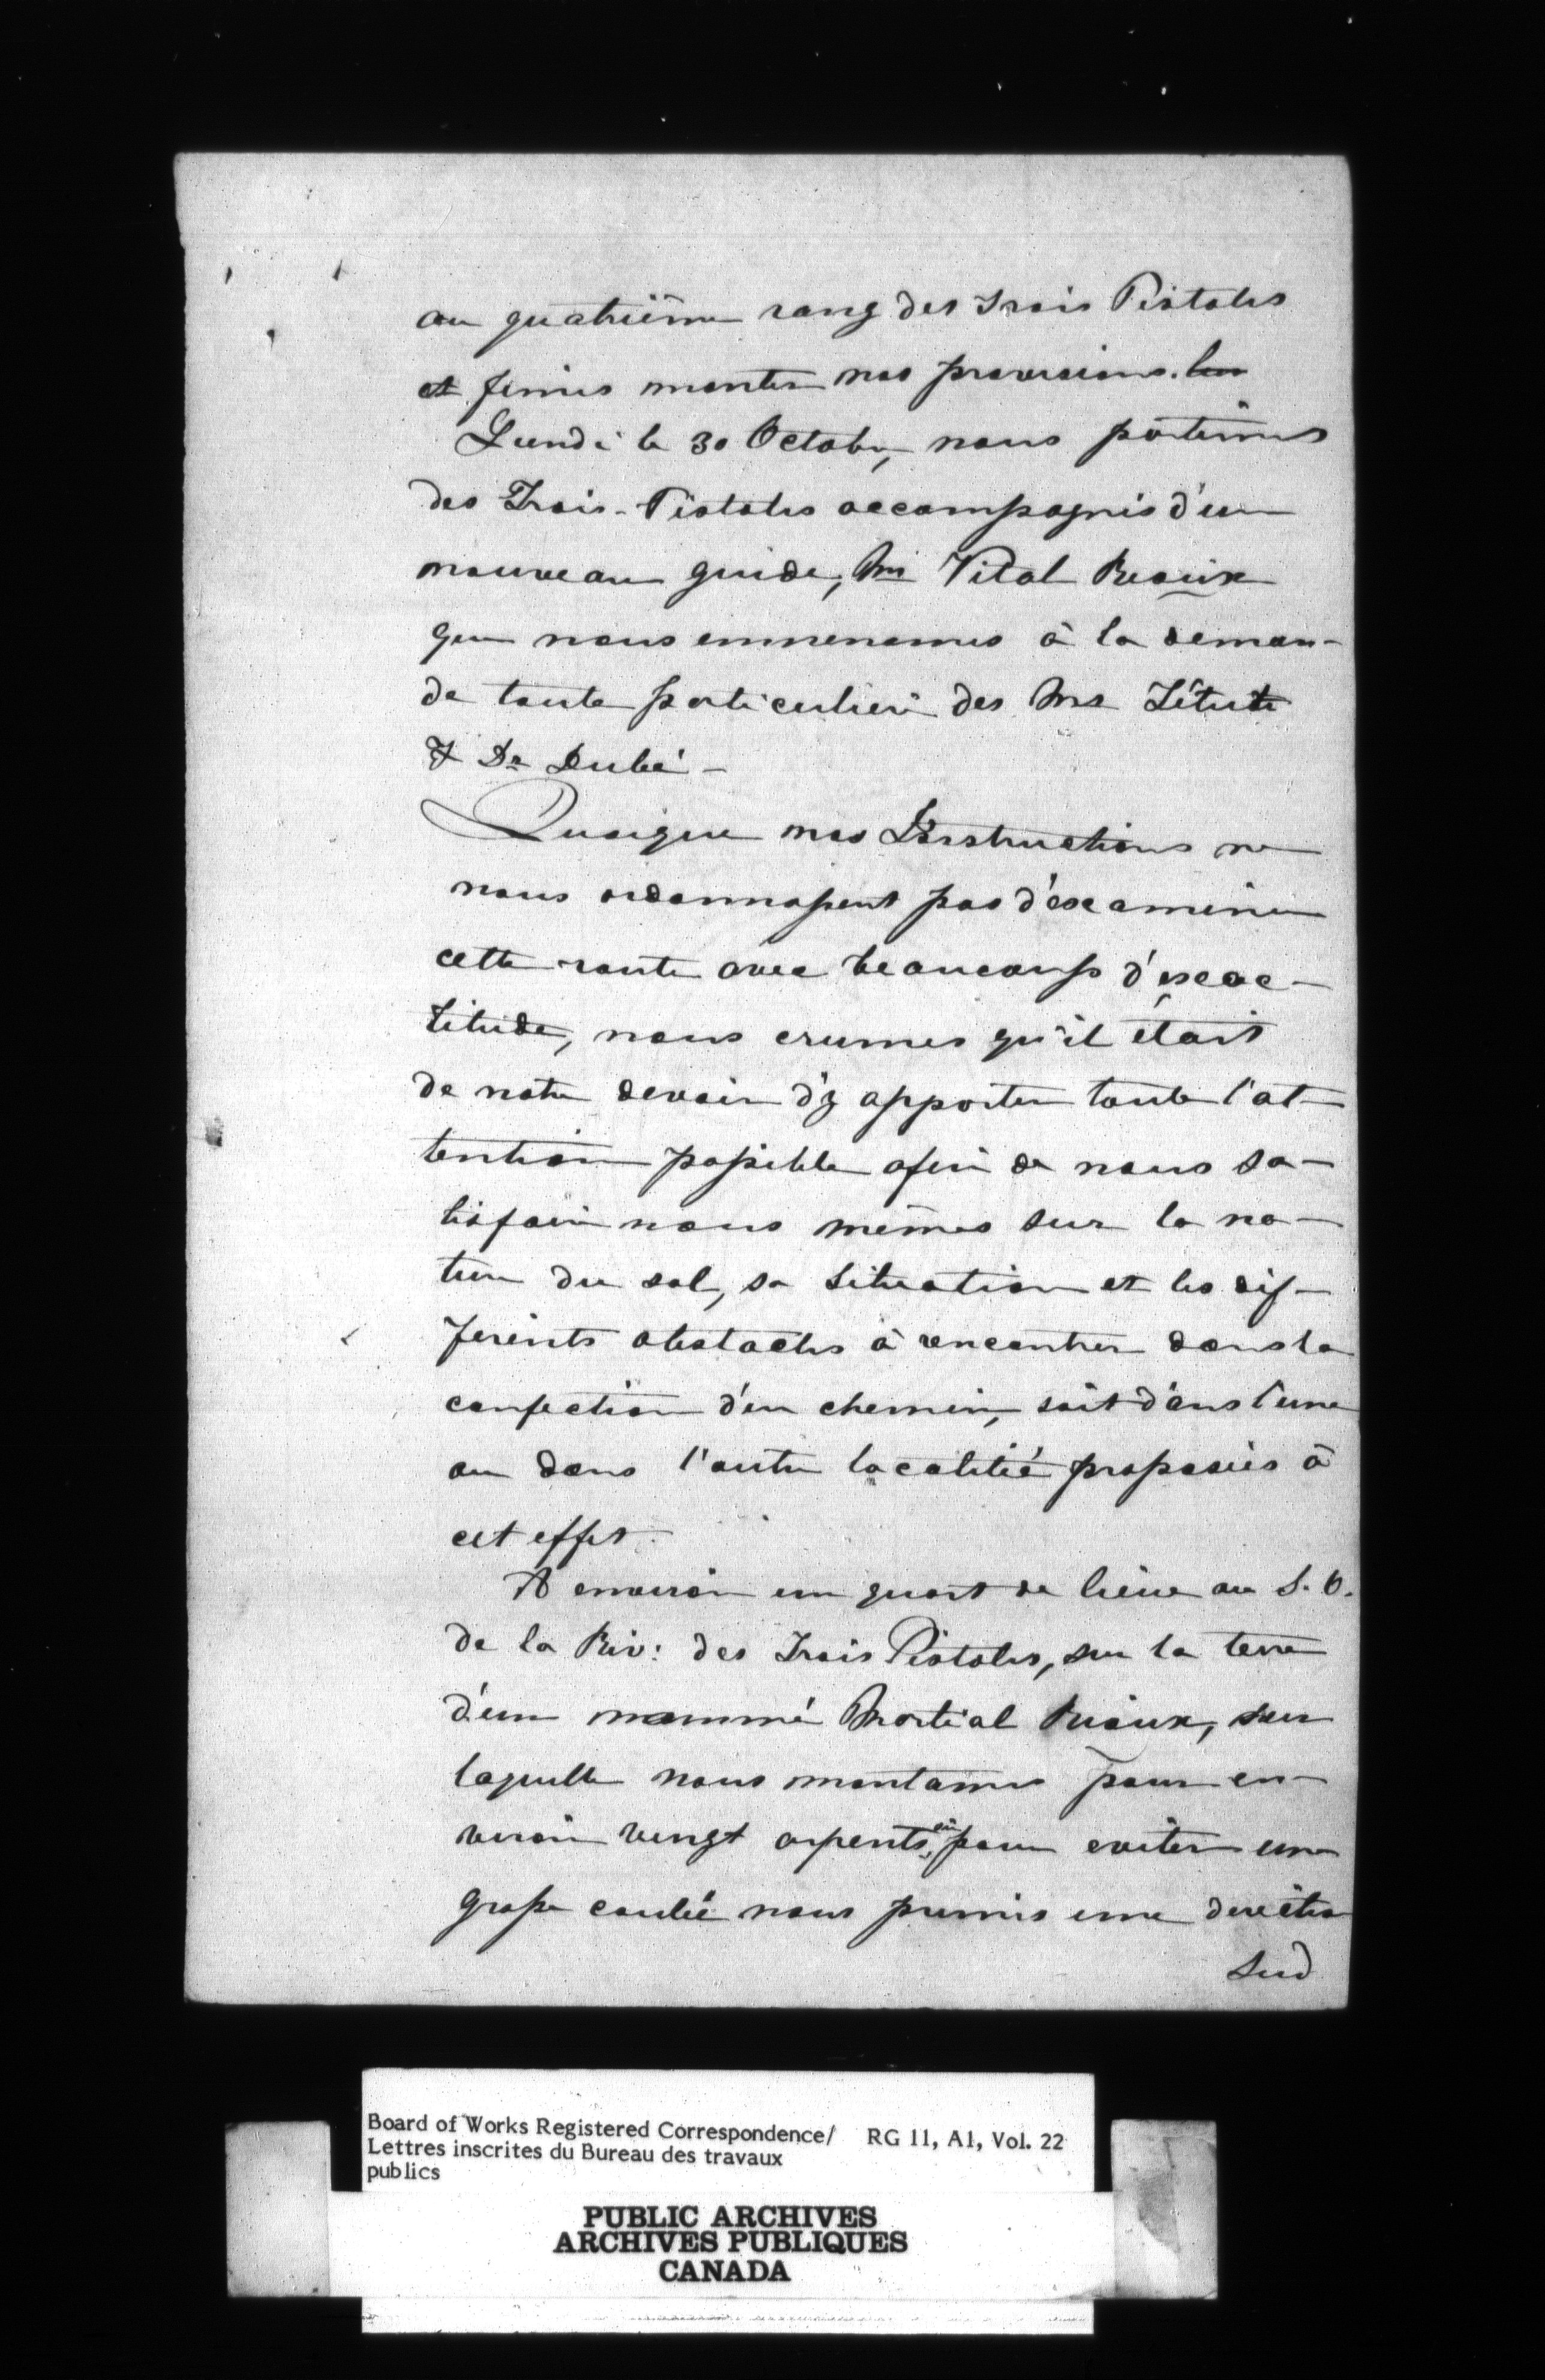 au quatrième rang des Trois Pistoles
et fimes monter nos provisions.
Lundi le 30 Octobre, nous partimes
des Trois-Pistoles accompagnés d'un
nouveau guide, Mr Vital Rioux
que nous emmenames à la deman-
de toute particulière des Mrs Têtu
& Dr Dubé -
Quoique nos Instructions ne
nous ordonnassent pas d'examiner
cette route avec beaucoup d'exac-
titude, nous crumes qu'il était
de notre devoir d'y apporter toute l'at-
tention possible afin de nous sa-
tisfaire nous mêmes sur la na-
ture du sol, sa situation et les dif-
ferents obstacles à rencontrer dans la
confection d'un chemin, soit dans l'une
ou dans l'autre localité proposées à
cet effet.
A environ un quart de lieue au S.O.
de la Riv: des Trois Pistoles, sur la terre
d'un nommé Martial Rioux, sur
laquelle nous montames pour en-
viron vingt arpents, où pour eviter une
grosse coulée nous primes une direction
Sud
Board of Works Registered Correspondence/ RG 11, A1, Vol. 22
Lettres inscrites du Bureau des travaux
publics
PUBLIC ARCHIVES
ARCHIVES PUBLIQUES
CANADA